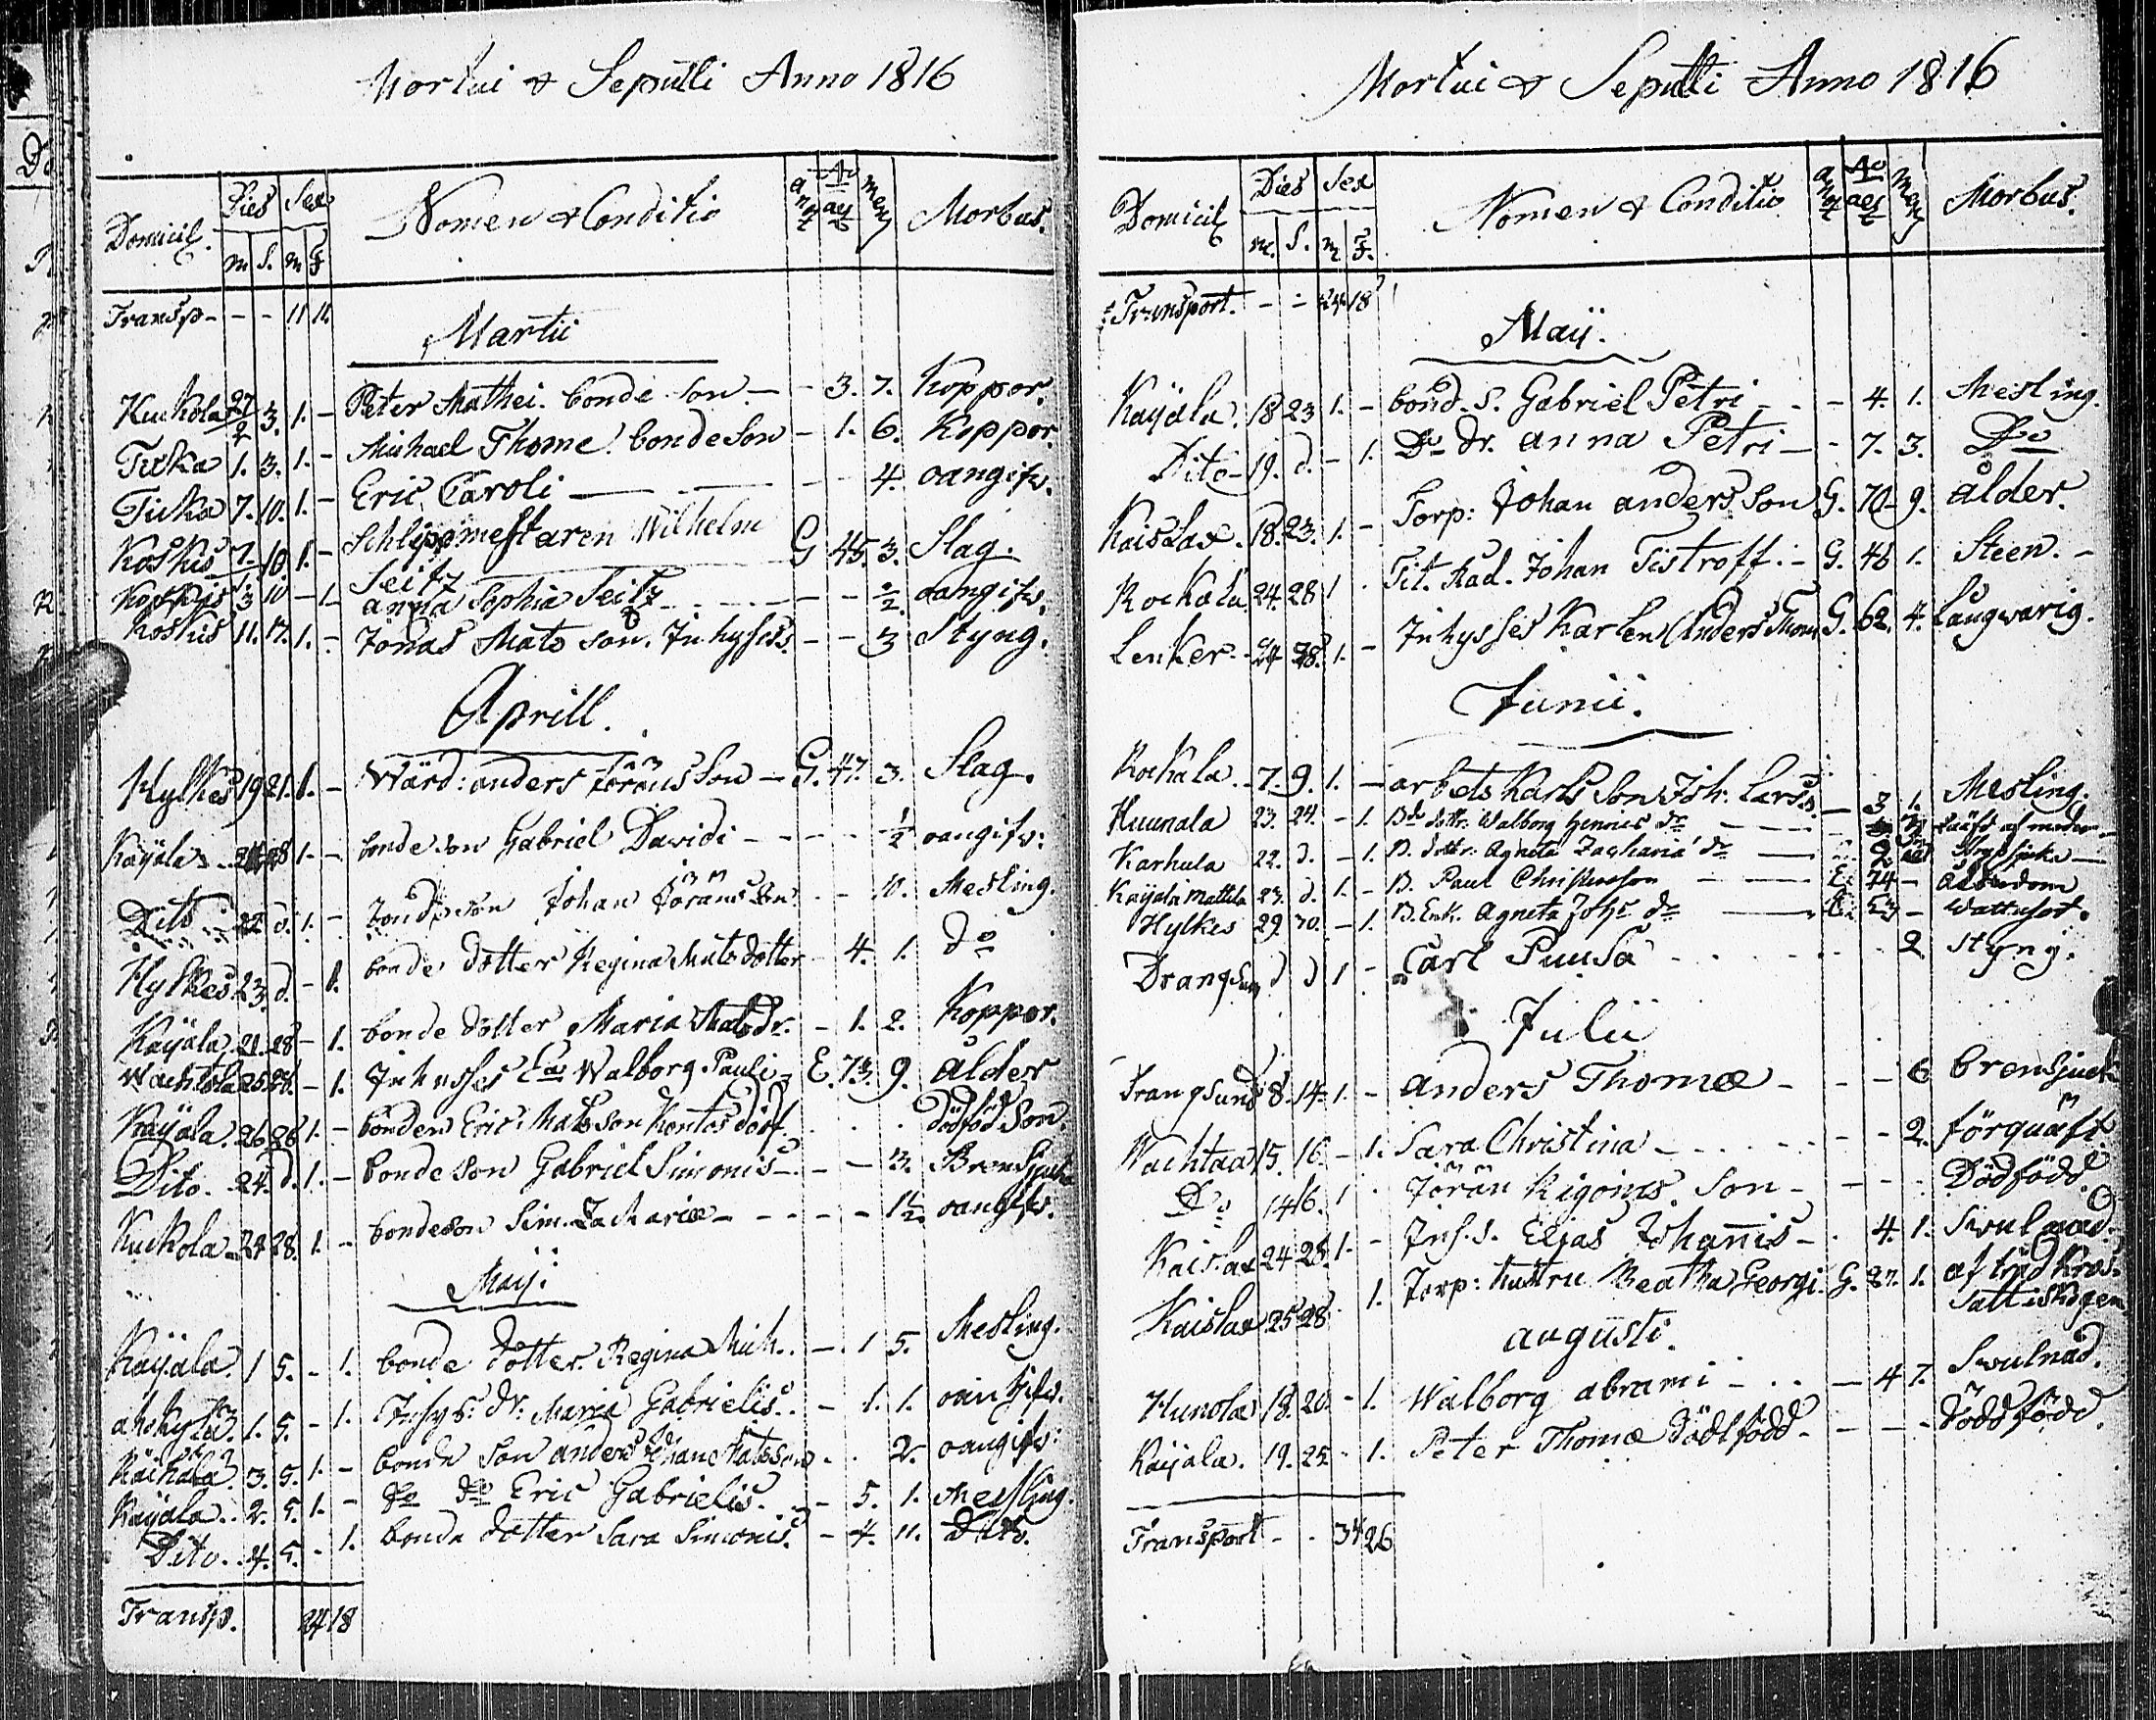 Mortui & Sepulti Anno 1816
Domicil. Dies Sex Nomen & Conditio Ao aet Mens Morbus.
m S. m F
Transp - - - 11 12
Martii
Kuckola 27/2 3. 1. - Peter Mathei. bonde son - - 3. 7. Koppor.
Tirka 1. 3. 1. - Michael Thome. bondeson - 1. 6. Koppor.
Tirka 7. 10. 1. - Eric Caroli - - - 4. oangifv.
Koskis 7. 10. 1. - Schlippmestaren Wilhelm
Seitz G 45. 3. Slag.
Koskis 3 10 - 1 - anna Sophia Seitz - - - ½ oangifv.
Koskis 11. 17. 1. - Jonas Mats son. Inhyses - - 3 Styng.
Aprill.
Hylkes 19 21. 1. - Wärd: anders Jörans Son - G. 47. 3. Slag.
Käyälä 28 1. - bonde son Gabriel Davidi - - - ½ oangifv:
Dito 22 d. 1. - bonde son Johan Jörans Son - - 10. Mesling.
Hylkes 23 d. - 1. bonde dotter Regina Mats dotter - 4. 1. do
Käyälä 21. 28 - 1. bonde dotter Maria Mats dr. - 1. 2. Koppor.
Wachtola 25 28. - 1. Inhyses Ea Walborg Pauli - E. 73. 9. ålder
Käyälä. 26 28 1. - bonden Eric Matsson Kontos dödf. . . . dödföd Son.
Dito. 24. d. 1. - bonde son Gabriel Simonis - - - 3. Bronsjuka
Kuckola 24 28. 1. - bondeson Sim. Zachariæ - - - - 1½ oangifv.
Maij.
Käyälä. 1 5. - 1. bonde dotter. Regina Mich. . - 1 5. Mesling.
1. 5. - 1. Inhys: dr. Maria Gabrielis. . - 1. 1. oangifv.
3. 5. 1. - bonde son anders . . 2. oangifv:
Käyälä. 2. 5. 1. - do do Eric Gabrielis. - - 5. 1. Messling.
Dito. 4. 5. - 1. bonde dotter Sara Simonis. - 4. 11. Dito.
Transp. 24 18
Mortui & Sepulti Anno 1816
Domicil Dies Sex Nomen & Conditio Ao aet Mens Morbus.
m. S. m F.
Transport. - - 24 18
Maij.
Käyälä. 18 23 1. - bond. S. Gabriel Petri - - - 4. 1. Mesling.
Dito - 19. d. - 1. Do dr. anna Petri - - 7. 3. Do
Kaislax. 18. 23. 1. - Torp: Johan anders son G. 70 - 9. ålder.
Rockala 24. 28 1 . Tit. Rad. Johan Tistroff. - G. 46 1. Steen. -
Lenker. - 24 28. 1. - Inhysses Karlen Anders Thom. G. 62. 4. Långwarig.
Junii.
Rockala. 7. 9. 1. - arbets karls Son Joh. Larss. - 3 1. Mesling.
Huunala 23. 24. - 1. Bde dottr. Walborg Henrics dr - - -
Karhula 22. d. - 1. B. dottr. Agneta Zachariæ dr -
Käyälä Mattila 23. d. 1. - B. Paul Christersson - - E. 74 - Ålderdom
Hylkes 29. 30. - 1. B. Enk. Agneta Johs dr - E. 53 - Wattusot.
Drangsund d d 1 - Carl Puusa - . . . . 2 styng.
Julii
Trangsund 8. 14. 1. - anders Thomæ - - - 6 bronsjuck
Wachtaa 15. 16. - 1. Sara Christina - . . . - - 2. förquäfd
Do 14 16. 1 . Jöran Rigonis. Son - - - . Dödfödd
Kaislax 24 28. 1. - Inh. S. Elias Johannis - . 4. 1. Svulnad.
Kaislax 25 28 . 1. Torp: hustru Beatha Georgi. G. 27. 1. af träd kros
satt i skogen
augusti.
Hunola 18. 20. - 1. Walborg abrami - . . - 4 7. Svulnad.
Käyälä. 19. 25. - 1. Peter Thomæ dödfödd - - - - dödfödd.
Transport - . 34 26